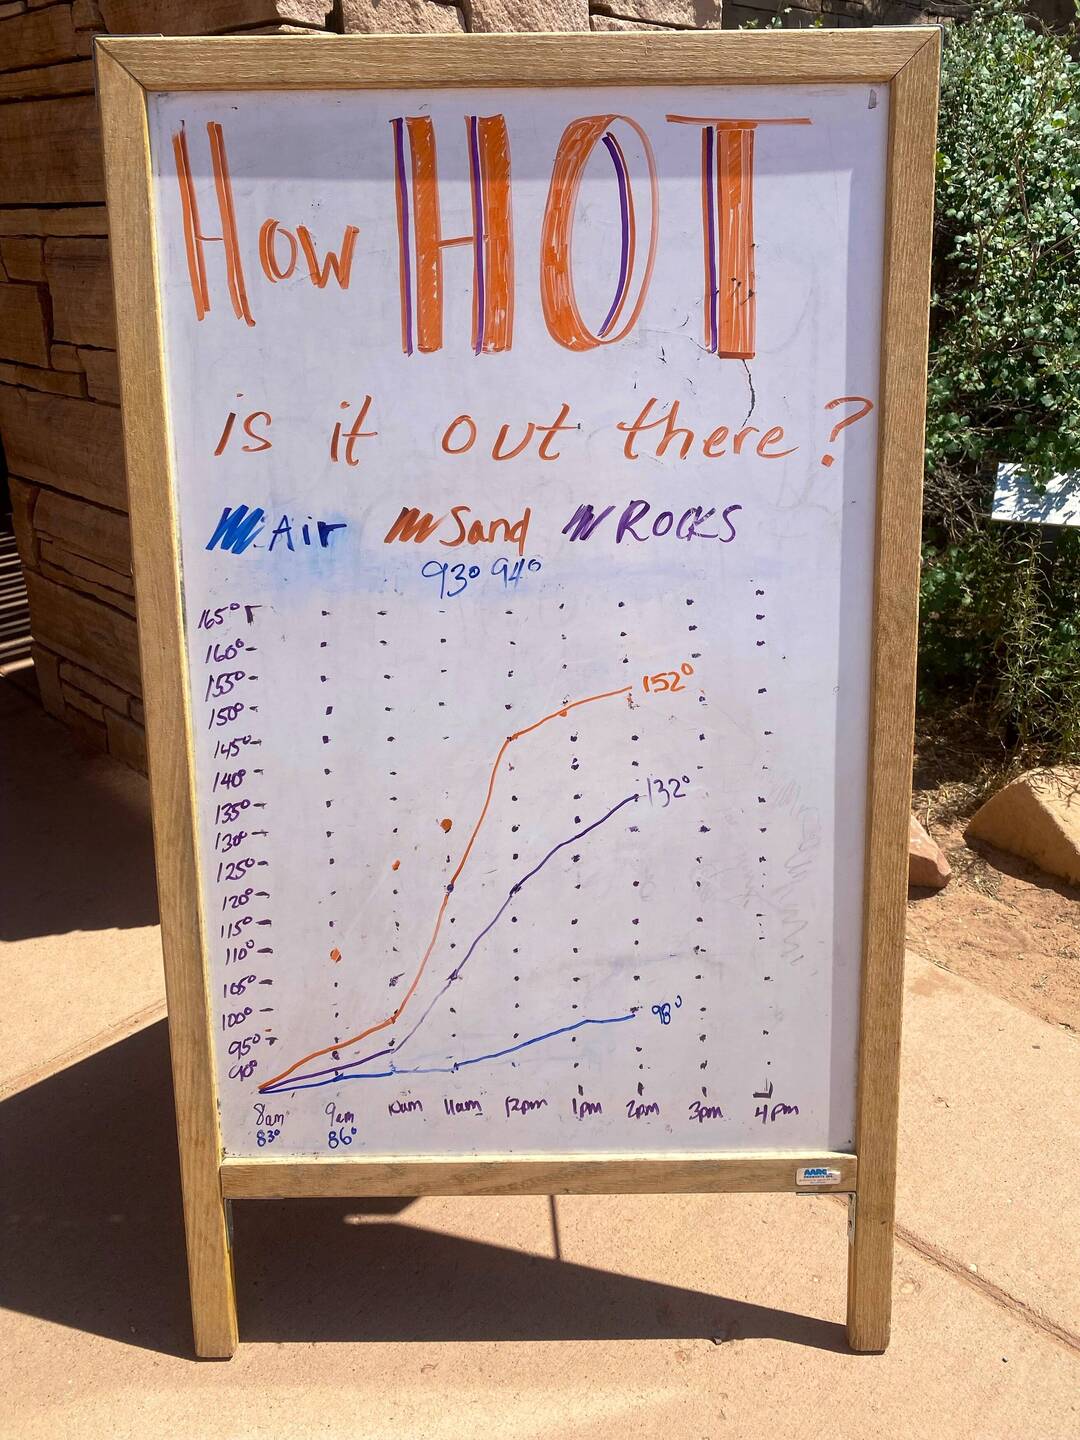 How HOT
is it out there?
Air Sand Rocks
93° 94°
165°
160°
155°
150°
145°
140°
135°
130°
125°
120°
115°
110°
105°
100°
95°
90°
152°
132°
98°
8am 9am 10am 11am 12pm 1pm 2pm 3pm 4pm
83° 86°
AARCO